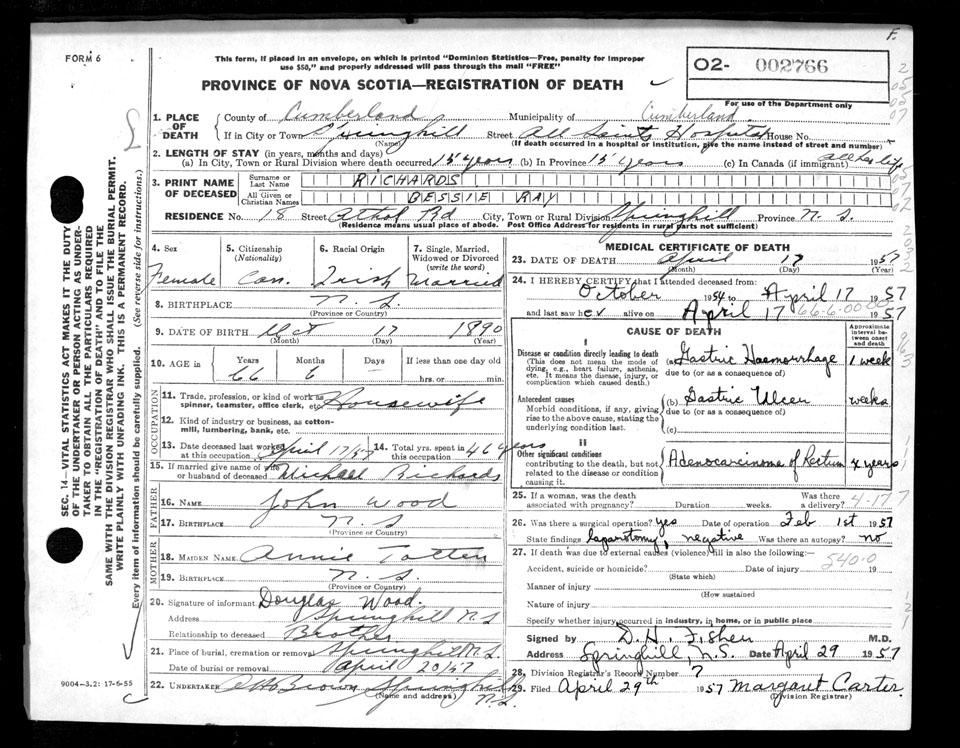 F.
FORM 6
This form, if placed in an envelope, on which is printed "Dominion Statistics—Free, penalty for improper
use $50," and properly addressed will pass through the mail "FREE"
PROVINCE OF NOVA SCOTIA—REGISTRATION OF DEATH
O2- 002766
For use of the Department only
1. PLACE OF DEATH
County of Cumberland Municipality of Cumberland
If in City or Town Springhill Street All Saints Hospital House No.
(Name) (If death occurred in a hospital or institution, give the name instead of street and number)
2. LENGTH OF STAY (in years, months and days)
(a) In City, Town or Rural Division where death occurred 15 years (b) In Province 15 years (c) In Canada (if immigrant) all her life
3. PRINT NAME OF DECEASED
Surname or Last Name RICHARDS
All Given or Christian Names BESSIE RAY
RESIDENCE No. 18 Street Athol Rd City, Town or Rural Division Springhill Province N. S.
(Residence means usual place of abode. Post Office Address for residents in rural parts not sufficient)
4. Sex Female
5. Citizenship (Nationality) Can.
6. Racial Origin Irish
7. Single, Married, Widowed or Divorced (write the word) Married
8. BIRTHPLACE N. S.
(Province or Country)
9. DATE OF BIRTH Oct 17 1890
(Month) (Day) (Year)
10. AGE in Years 66 Months 6 Days — If less than one day old hrs. or min.
OCCUPATION
11. Trade, profession, or kind of work as spinner, teamster, office clerk, etc. Housewife
12. Kind of industry or business, as cotton-mill, lumbering, bank, etc.
13. Date deceased last worked at this occupation April 17/57 14. Total yrs. spent in this occupation 46 years
15. If married give name of wife or husband of deceased Michael Richards
FATHER
16. NAME John Wood
17. BIRTHPLACE N. S
(Province or Country)
MOTHER
18. MAIDEN NAME Annie Totten
19. BIRTHPLACE N. S.
(Province or Country)
20. Signature of informant Douglas Wood.
Address Springhill N. S
Relationship to deceased Brother
21. Place of burial, cremation or removal Springhill N. S.
Date of burial or removal April 20/57
22. UNDERTAKER Brown Springhill N. S.
(Name and address)
9004-3.2: 17-6-55
MEDICAL CERTIFICATE OF DEATH
23. DATE OF DEATH April 17 1957
(Month) (Day) (Year)
24. I HEREBY CERTIFY that I attended deceased from:
October 1954 to April 17 1957
and last saw her alive on April 17 1957
CAUSE OF DEATH
Approximate interval between onset and death
I
Disease or condition directly leading to death
(This does not mean the mode of dying, e.g., heart failure, asthenia, etc. It means the disease, injury, or complication which caused death.)
(a) Gastric Haemorrhage 1 week
due to (or as a consequence of)
Antecedent causes
Morbid conditions, if any, giving rise to the above cause, stating the underlying condition last.
(b) Gastric Ulcer weeks
due to (or as a consequence of)
(c)
II
Other significant conditions
contributing to the death, but not related to the disease or condition causing it.
Adenocarcinoma of Rectum 4 years
25. If a woman, was the death associated with pregnancy? Duration weeks. Was there a delivery? 4-17 7
26. Was there a surgical operation? yes Date of operation Feb 1st 1957
State findings laparotomy, negative Was there an autopsy? no
27. If death was due to external causes (violence) fill in also the following:—
Accident, suicide or homicide? Date of injury 19 540.0
(State which)
Manner of injury
(How sustained
Nature of injury
Specify whether injury occurred in industry, in home, or in public place
Signed by D. H. Fisher M.D.
Address Springhill N.S. Date April 29 1957
28. Division Registrar's Record Number 7
29. Filed April 29th 1957 Margaret Carter.
(Division Registrar)
SEC. 14—VITAL STATISTICS ACT MAKES IT THE DUTY
OF THE UNDERTAKER OR PERSON ACTING AS UNDER-
TAKER TO OBTAIN ALL THE PARTICULARS REQUIRED
IN THE "REGISTRATION OF DEATH" AND TO FILE THE
SAME WITH THE DIVISION REGISTRAR WHO SHALL ISSUE THE BURIAL PERMIT.
WRITE PLAINLY WITH UNFADING INK. THIS IS A PERMANENT RECORD.
Every item of information should be carefully supplied. (See reverse side for instructions.)